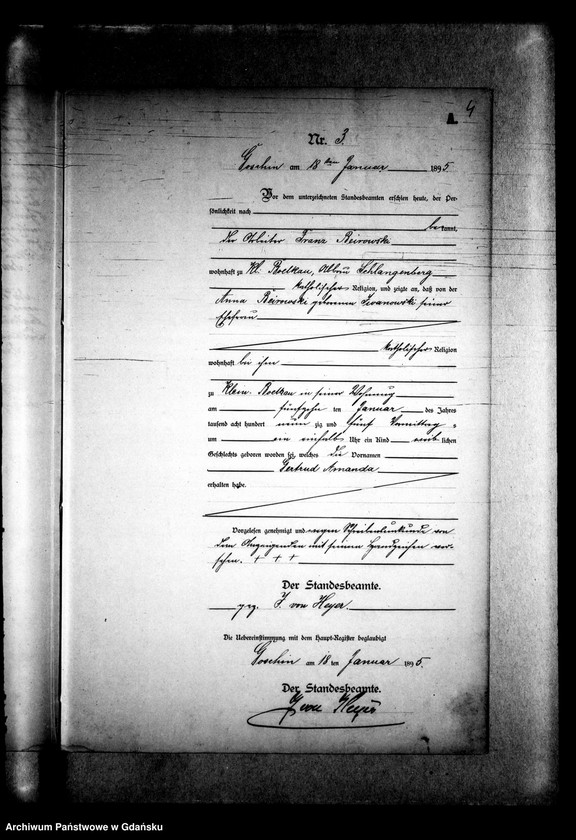 4
A.
Nr. 3.
Goschin am 18ten Januar 1895.
Vor dem unterzeichneten Standesbeamten erschien heute, der Per-
sönlichkeit nach
bekannt,
der Arbeiter Franz
wohnhaft zu Kl. Roelkau, Schlangenberg
katholischer Religion, und zeigte an, daß von der
Anna geborenen Iwanowski seiner
Ehefrau
katholischer Religion
wohnhaft bei ihm
zu Klein Roelkau in seiner Wohnung
am fünfzehn ten Januar des Jahres
tausend acht hundert neun zig und fünf Vormittag s
um ein einhalb Uhr ein Kind weib lichen
Geschlechts geboren worden sei, welches die Vornamen
Gertrud Amanda
erhalten habe.
Vorgelesen, genehmigt und wegen Schreibensunkunde von
dem Anzeigenden mit seinem Handzeichen ver-
sehen. + + +
Der Standesbeamte.
gez. J. von Heyer.
Die Uebereinstimmung mit dem Haupt-Register beglaubigt
Goschin am 18 ten Januar 1895.
Der Standesbeamte.
J von Heyer
Archiwum Państwowe w Gdańsku